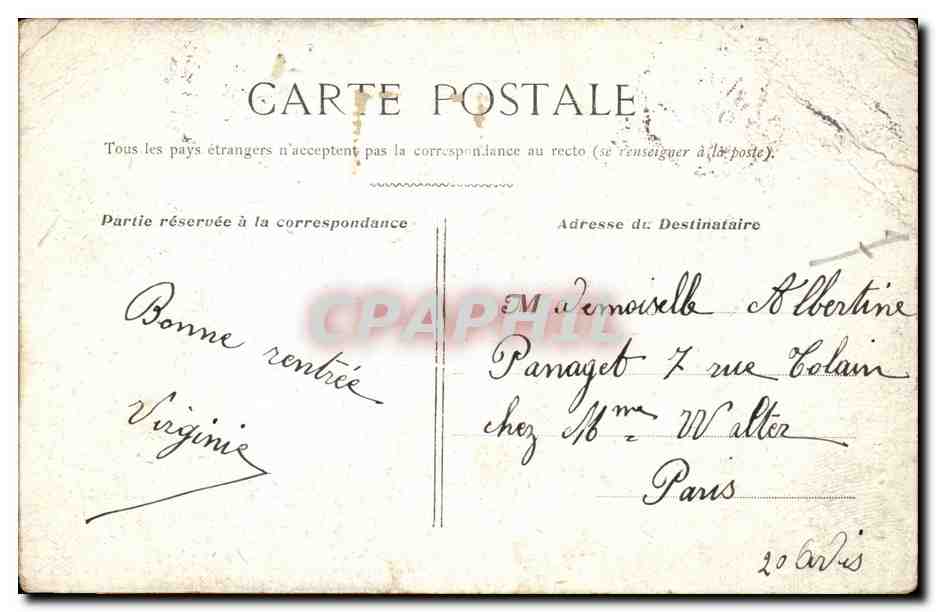 CARTE POSTALE
Tous les pays étrangers n'acceptent pas la correspondance au recto (se renseigner à la poste).
Partie réservée à la correspondance
Adresse du Destinataire
Bonne rentrée
Virginie
CPAPHIL
Mademoiselle Albertine
Panaget 7 rue Tolain
chez Mme Walter
Paris
20